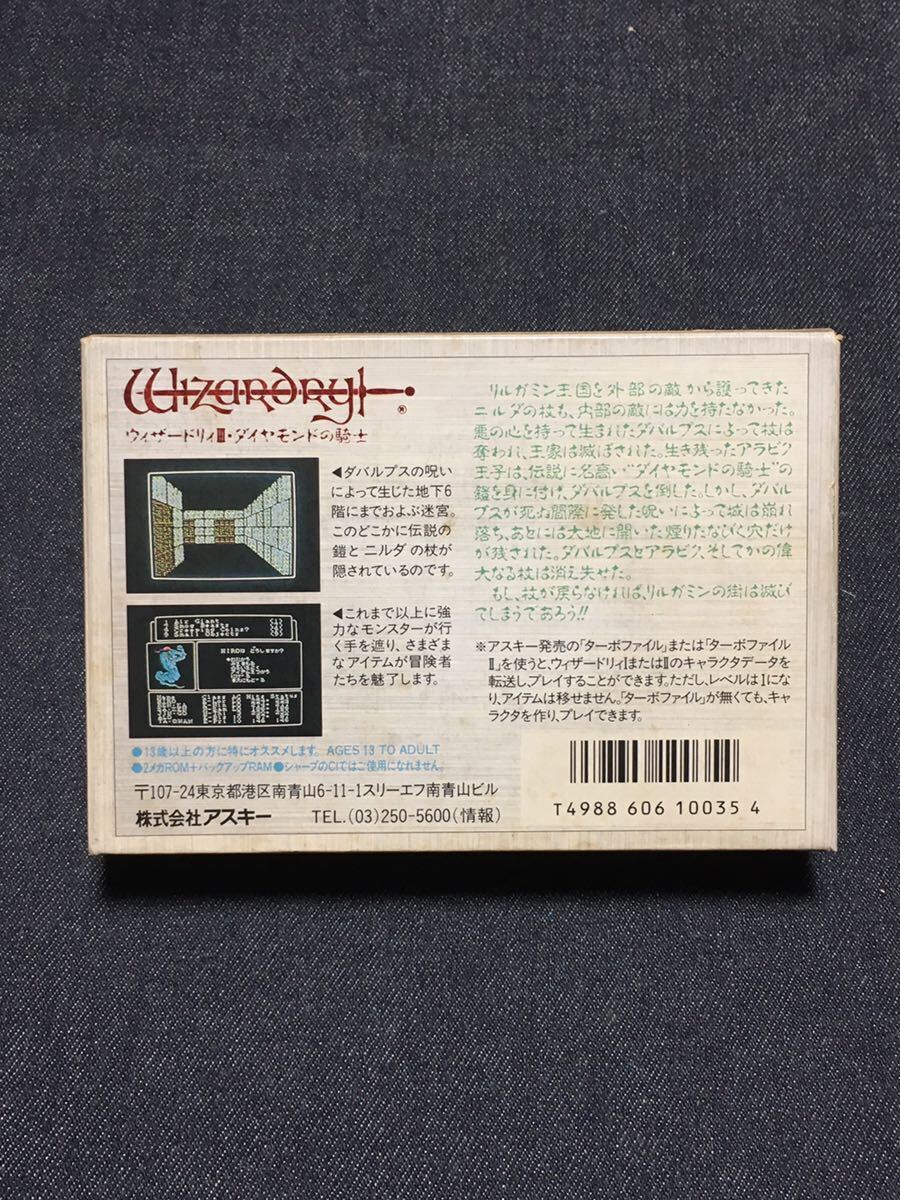 Wizardry®
ウィザードリィⅢ・ダイヤモンドの騎士
◀ダバルプスの呪い
によって生じた地下6
階にまでおよぶ迷宮。
このどこかに伝説の
鎧とニルダの杖が
隠されているのです。
◀これまで以上に強
力なモンスターが行
く手を遮り、さまざま
なアイテムが冒険者
たちを魅了します。
HIROは どうしますか?
●13歳以上の方に特にオススメします。AGES 13 TO ADULT
●2メガROM+バックアップRAM●シャープのC1ではご使用になれません。
〒107-24東京都港区南青山6-11-1スリーエフ南青山ビル
株式会社アスキー TEL.(03)250-5600(情報)
リルガミン王国を外部の敵から護ってきた
ニルダの杖も、内部の敵には力を持たなかった。
悪の心を持って生まれたダバルプスによって杖は
奪われ、王家は滅ぼされた。生き残ったアラビク
王子は、伝説に名高い"ダイヤモンドの騎士"の
鎧を身に付け、ダバルプスを倒した。しかし、ダバル
プスが死ぬ間際に発した呪いによって城は崩れ
落ち、あとには大地に開いた煙りたなびく穴だけ
が残された。ダバルプスとアラビク、そしてかの偉
大なる杖は消え失せた。
もし、杖が戻らなければ、リルガミンの街は滅びて
しまうであろう!!
※アスキー発売の「ターボファイル」または「ターボファイル
Ⅱ」を使うと、ウィザードリィⅠまたはⅡのキャラクタデータを
転送し、プレイすることができます。ただし、レベルは1にな
り、アイテムは移せません。「ターボファイル」が無くても、キャ
ラクタを作り、プレイできます。
T4988 606 10035 4